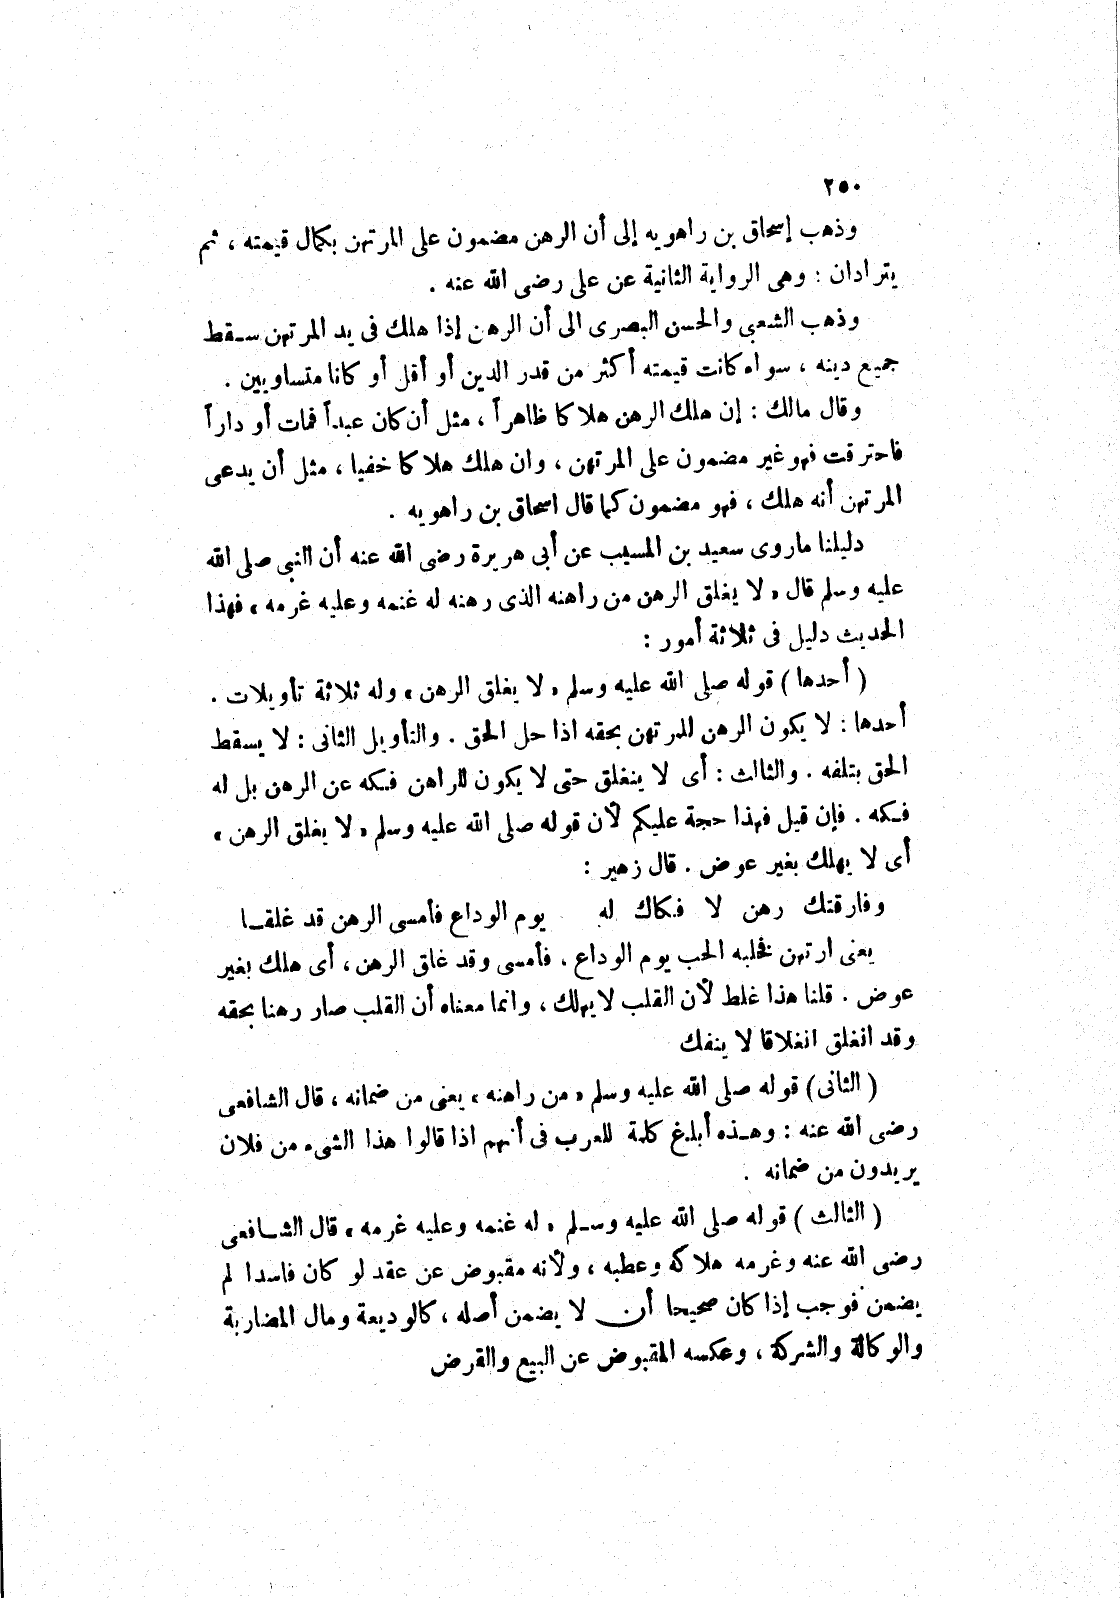 ٢٥٠
وذهب إسحاق بن راهويه إلى أن الرهن مضمون على المرتهن بكمال قيمته ، ثم
يترادان : وهى الرواية الثانية عن على رضى الله عنه .
وذهب الشعبى والحسن البصرى الى أن الرهن إذا هلك فى يد المرتهن سـقط
جميع دينه ، سواء كانت قيمته أكثر من قدر الدين أو أقل أو كانا متساويين .
وقال مالك : إن هلك الرهن هلاكا ظاهراً ، مثل أن كان عبداً فمات أو داراً
فاحترقت فهو غير مضمون على المرتهن ، وان هلك هلاكا خفيا ، مثل أن يدعى
المرتهن أنه هلك ، فهو مضمون كما قال اسحاق بن راهويه .
دليلنا ماروى سعيد بن المسيب عن أبى هريرة رضى الله عنه أن النبى صلى الله
عليه وسلم قال « لا يغلق الرهن من راهنه الذى رهنه له غنمه وعليه غرمه » فهذا
الحديث دليل فى ثلاثة أمور :
( أحدها ) قوله صلى الله عليه وسلم « لا يغلق الرهن » وله ثلاثة تأويلات .
أحدها : لا يكون الرهن للمرتهن بحقه اذا حل الحق . والتأويل الثانى : لا يسقط
الحق بتلفه . والثالث : أى لا ينغلق حتى لا يكون للراهن فـكه عن الرهن بل له
فـكه . فإن قيل فهذا حجة عليكم لأن قوله صلى الله عليه وسلم « لا يغلق الرهن »
أى لا يهلك بغير عوض . قال زهير :
وفارقتك رهن لا فكاك له    يوم الوداع فأمسى الرهن قد غلقــا
يعنى ارتهن فخلبه الحب يوم الوداع . فأمسى وقد غلق الرهن ، أى هلك بغير
عوض . قلنا هذا غلط لأن القلب لايهلك ، وانما معناه أن القلب صار رهنا بحقه
وقد انغلق انغلاقا لا ينفك
( الثانى ) قوله صلى الله عليه وسلم « من راهنه » يعنى من ضمانه ، قال الشافعى
رضى الله عنه : وهـذه أبلغ كلمة للعرب فى أنهم اذا قالوا هذا الشىء من فلان
يريدون من ضمانه .
( الثالث ) قوله صلى الله عليه وسـلم « له غنمه وعليه غرمه » قال الشـافعى
رضى الله عنه وغرمه هلاكه وعطبه ، ولأنه مقبوض عن عقد لو كان فاسدا لم
يضمن فوجب إذا كان صحيحا أن لا يضمن أصله ، كالوديعة ومال المضاربة
والوكالة والشركة ، وعكسه المقبوض عن البيع والقرض